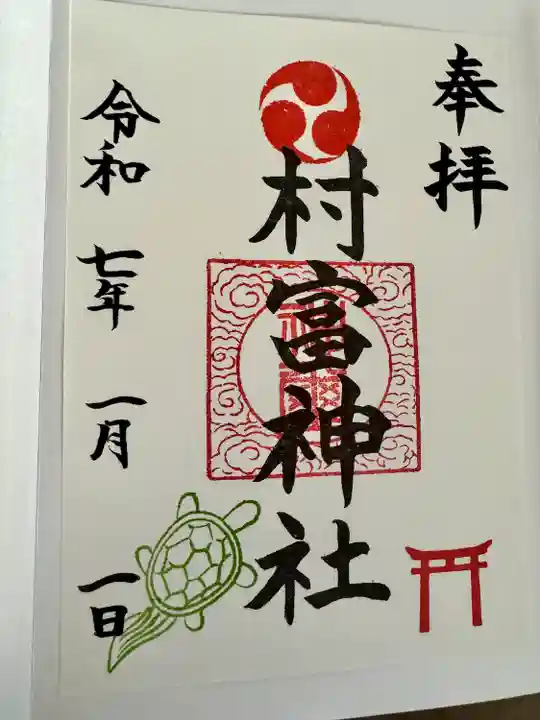 奉拝
村富神社
令和 七年 一月 一日